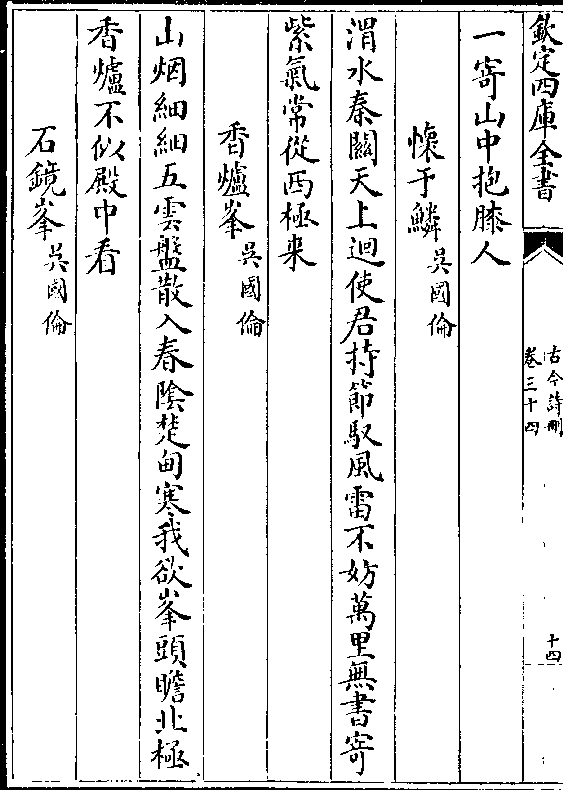 欽定四庫全書
古今詩刪
卷三十四
十四
一寄山中抱膝人
懷于鱗 吳國倫
渭水秦關天上迴使君持節馭風雷不妨萬里無書寄
紫氣常從西極来
香爐峯 吳國倫
山烟細細五雲盤散入春陰楚甸寒我欲峯頭瞻北極
香爐不似殿中看
石鏡峯 吳國倫